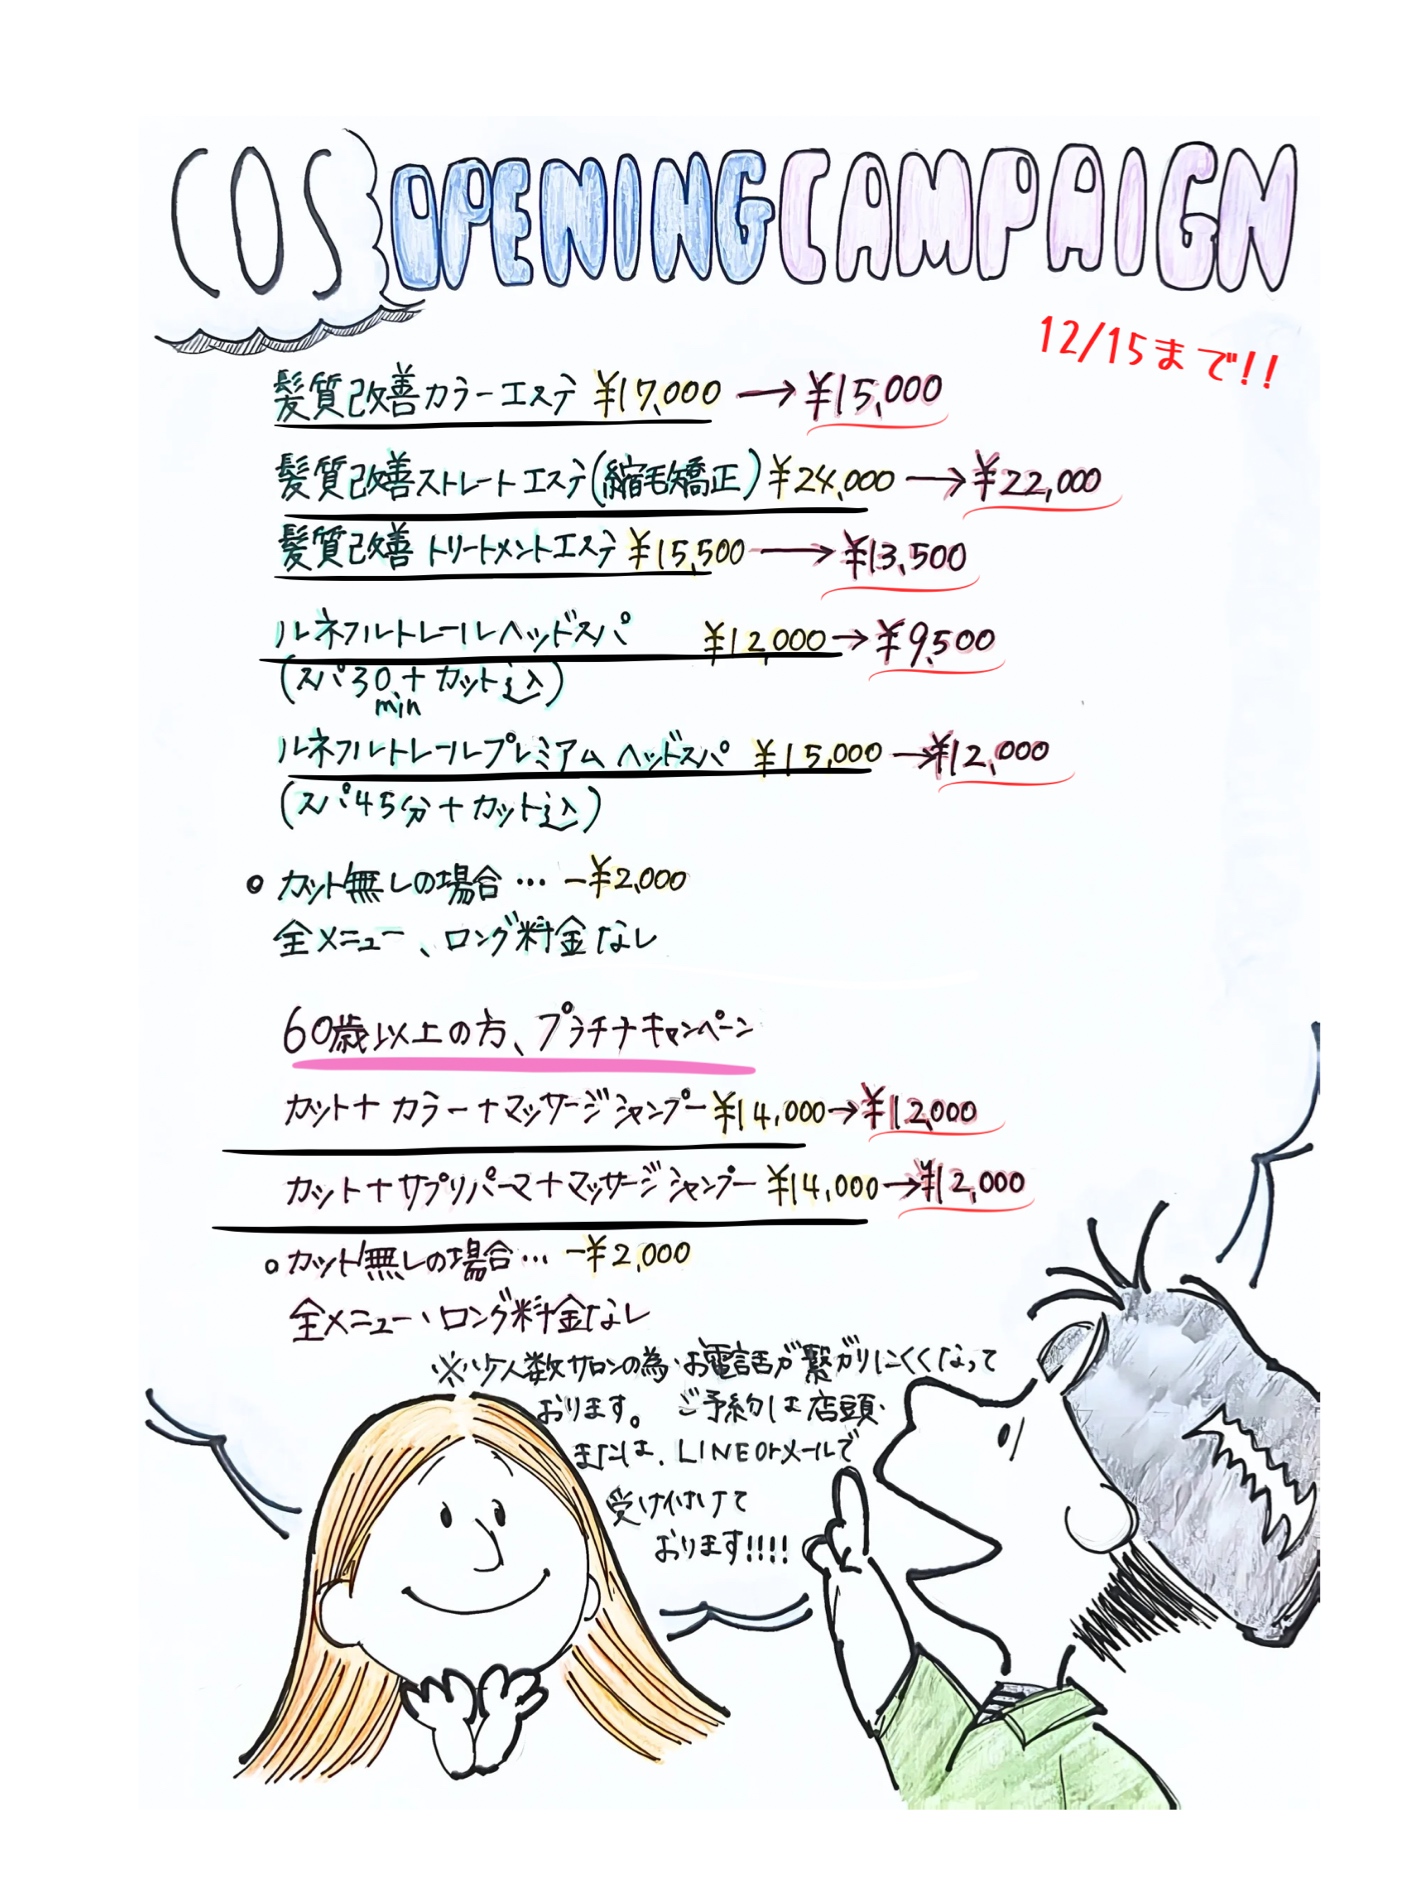 COS OPENING CAMPAIGN
12/15まで!!
髪質改善カラーエステ ¥17,000 → ¥15,000
髪質改善ストレートエステ(縮毛矯正) ¥24,000 → ¥22,000
髪質改善トリートメントエステ ¥15,500 → ¥13,500
ルネフルトレールヘッドスパ ¥12,000 → ¥9,500
(スパ30min+カット込)
ルネフルトレールプレミアムヘッドスパ ¥15,000 → ¥12,000
(スパ45分+カット込)
○ カット無しの場合… -¥2,000
全メニュー、ロング料金なし
60歳以上の方、プラチナキャンペーン
カット+カラー+マッサージシャンプー ¥14,000 → ¥12,000
カット+サプリパーマ+マッサージシャンプー ¥14,000 → ¥12,000
○ カット無しの場合… -¥2,000
全メニュー、ロング料金なし
※少人数サロンの為、お電話が繋がりにくくなって
おります。 ご予約は店頭、
または、LINEorメールで
受け付けて
おります!!!!